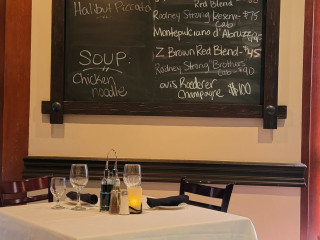 Halibut Piccata
SOUP:
Chicken
noodle
Red Blend - $75
Rodney Strong Reserve -
Cab
Montepulciano d'Abruzzo
Z. Brown Red Blend - $45
Rodney Strong "Brothers"
Cab - $90
ouis Roederer
Champagne $100